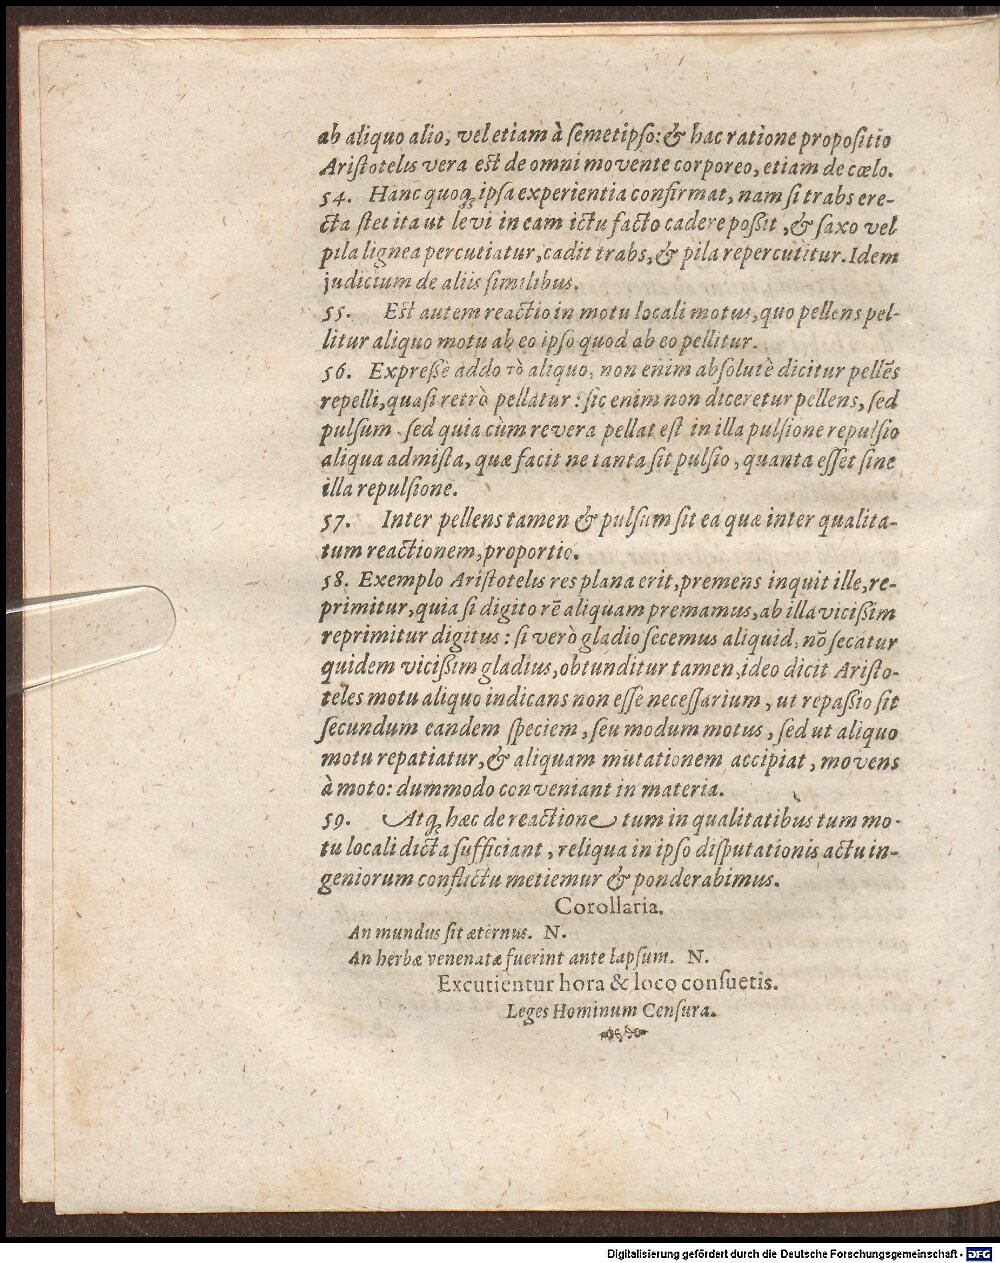 ab aliquo alio, vel etiam à ſemetipſo: & hac ratione propoſitio
Ariſtotelis vera eſt de omni movente corporeo, etiam de cœlo.
54. Hanc quoq; ipſa experientia confirmat, nam ſi trabs ere-
cta ſtet ita ut levi in eam ictu facto cadere poßit, & ſaxo vel
pila lignea percutiatur, cadit trabs, & pila repercutitur. Idem
judicium de aliis ſimilibus.
55. Eſt autem reactio in motu locali motus, quo pellens pel-
litur aliquo motu ab eo ipſo quod ab eo pellitur.
56. Expreßè addo τὸ aliquo, non enim abſolutè dicitur pellẽs
repelli, quaſi retrò pellatur: ſic enim non diceretur pellens, ſed
pulſum. ſed quia cùm revera pellat eſt in illa pulſione repulſio
aliqua admiſta, quæ facit ne tanta ſit pulſio, quanta eſſet ſine
illa repulſione.
57. Inter pellens tamen & pulſum ſit ea quæ inter qualita-
tum reactionem, proportio.
58. Exemplo Ariſtotelis res plana erit, premens inquit ille, re-
primitur, quia ſi digito rẽ aliquam premamus, ab illa vicißim
reprimitur digitus: ſi verò gladio ſecemus aliquid, nõ ſecatur
quidem vicißim gladius, obtunditur tamen, ideo dicit Ariſto-
teles motu aliquo indicans non eſſe neceſſarium, ut repaßio ſit
ſecundum eandem ſpeciem, ſeu modum motus, ſed ut aliquo
motu repatiatur, & aliquam mutationem accipiat, movens
à moto: dummodo conveniant in materia.
59. Atq; hæc de reactione tum in qualitatibus tum mo-
tu locali dicta ſufficiant, reliqua in ipſo diſputationis actu in-
geniorum conflictu metiemur & ponderabimus.
Corollaria.
An mundus ſit æternus. N.
An herbæ venenatæ fuerint ante lapſum. N.
Excutientur hora & loco conſuetis.
Leges Hominum Cenſura.
Digitalisierung gefördert durch die Deutsche Forschungsgemeinschaft - DFG